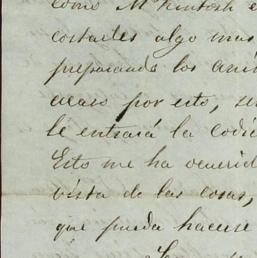 como McKintosh e
costarles algo mas
preparando los ani
acaso por esto, se
le entrará la codic
Esto me ha ocurrid
vista de las cosas,
que pueda hacerse